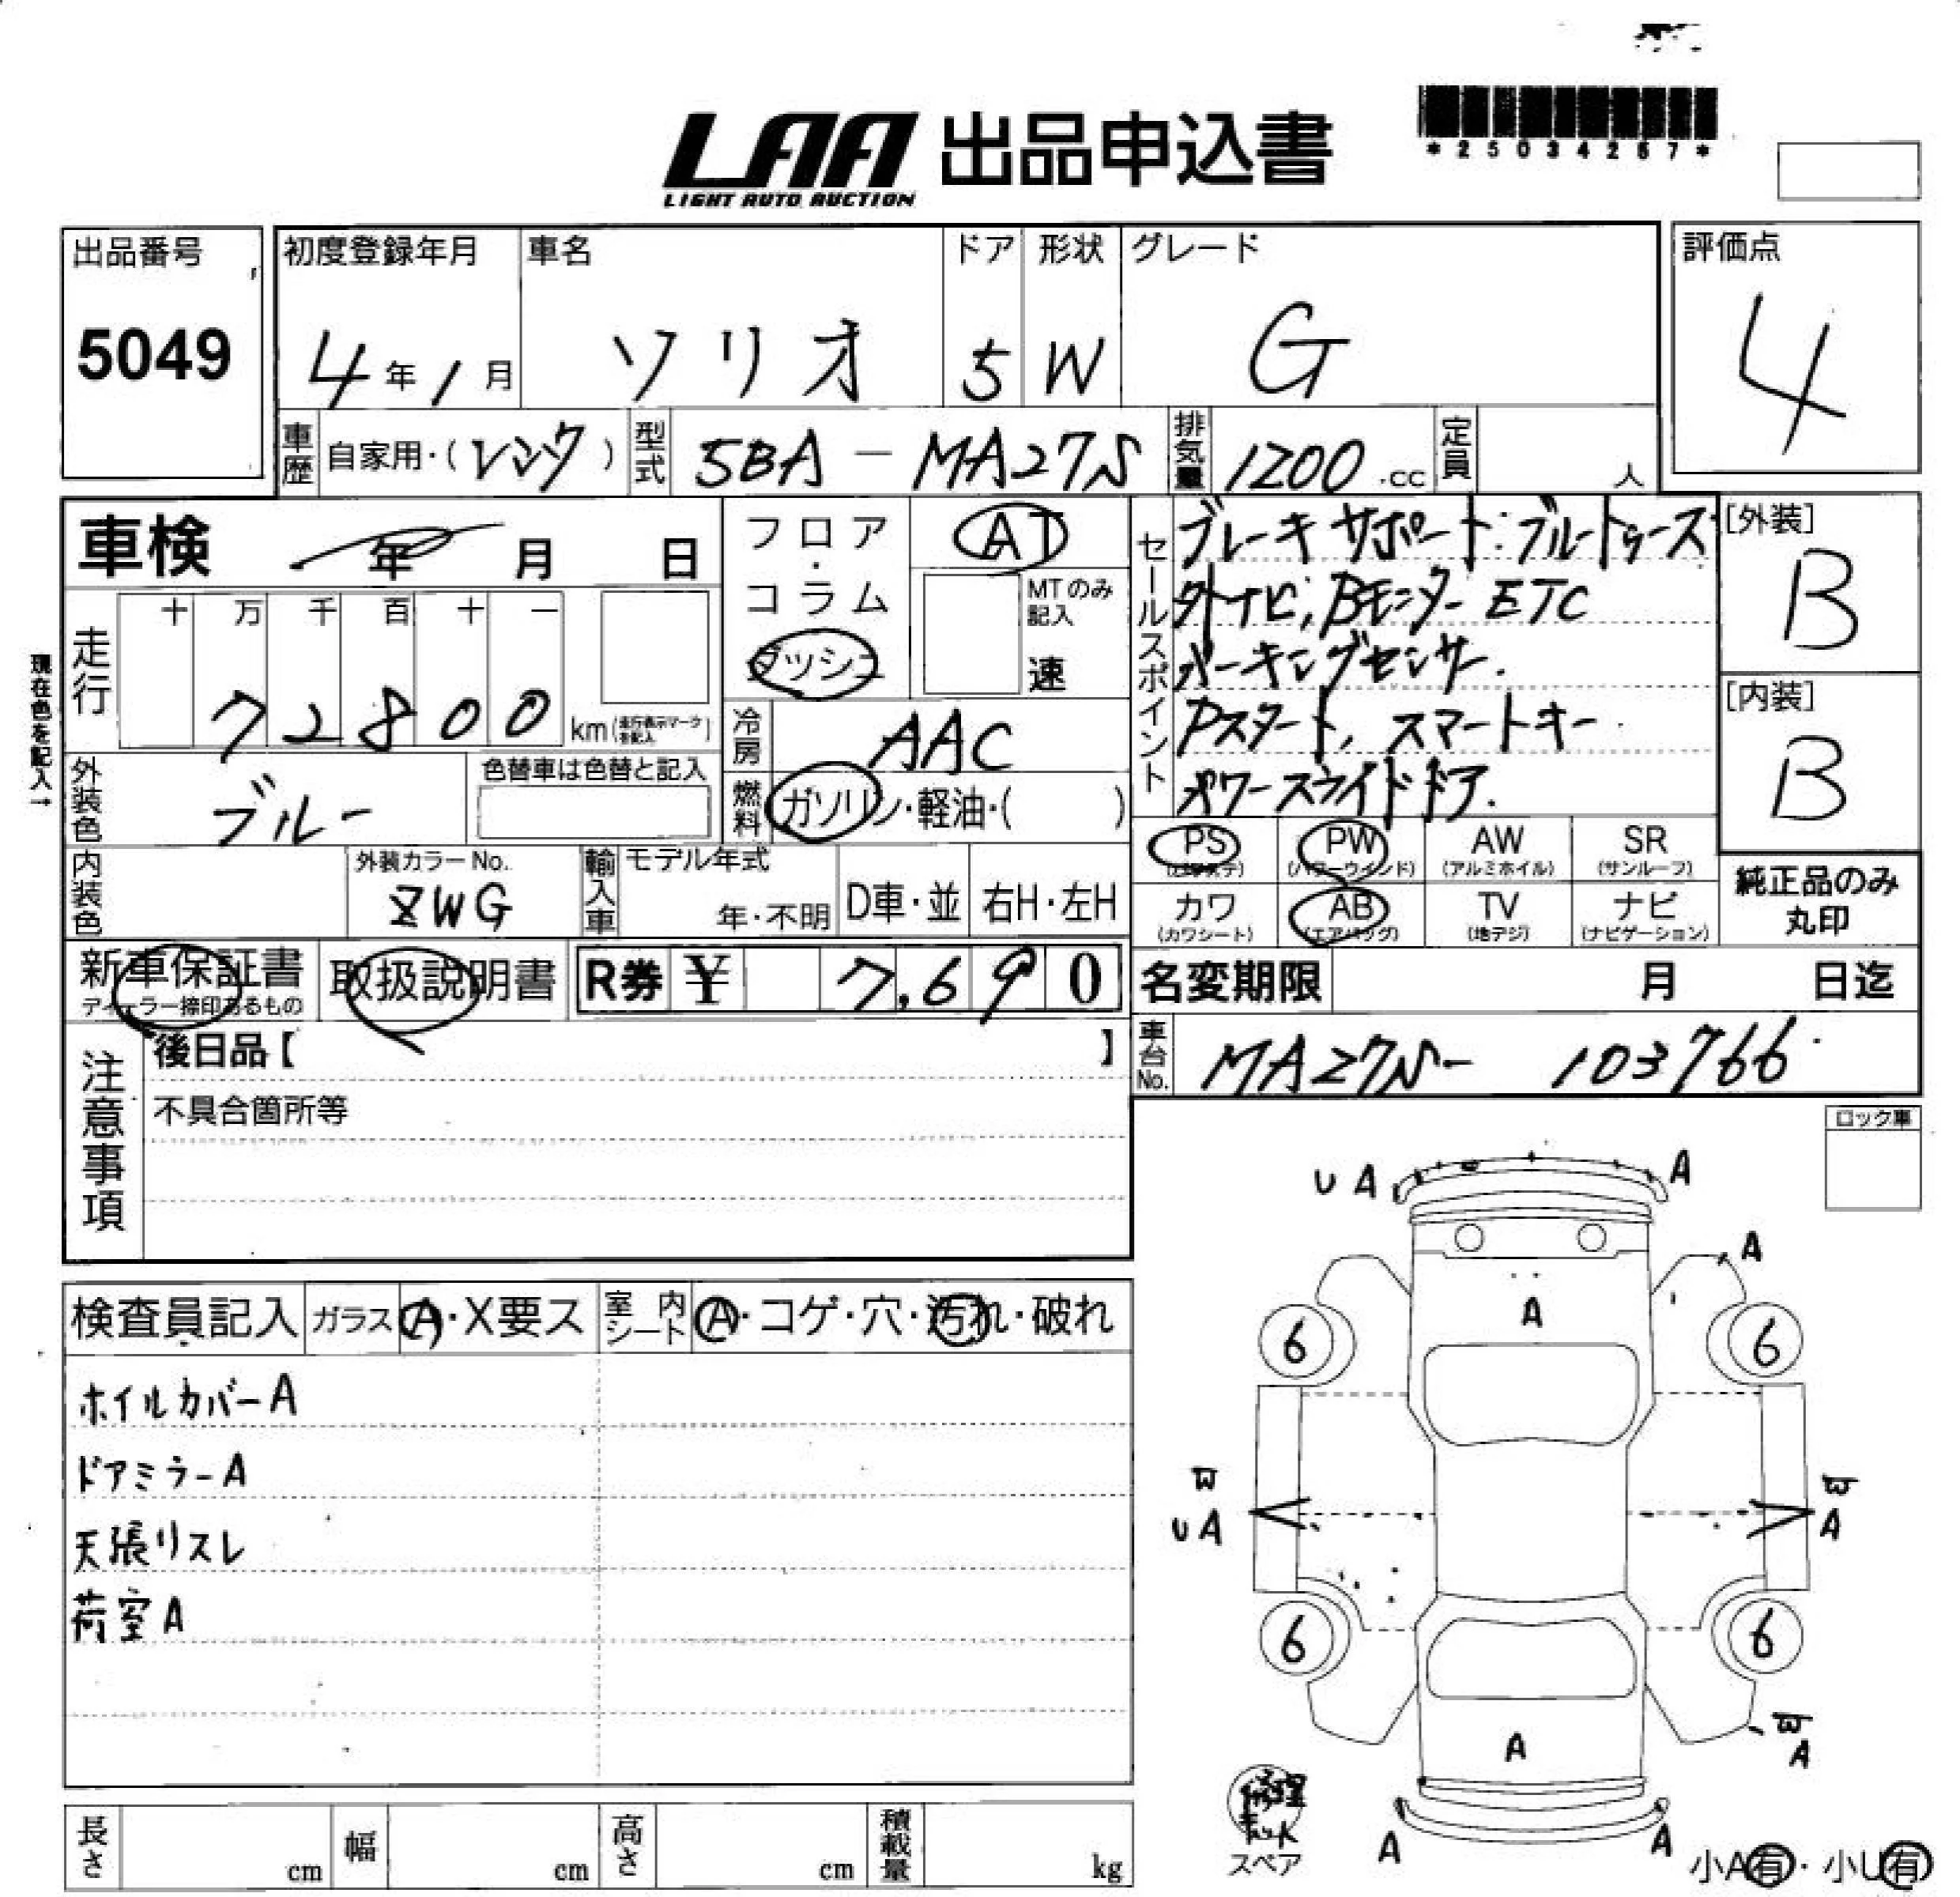 LAA 出品申込書
LIGHT AUTO AUCTION
*25034267*
出品番号
5049
初度登録年月
4年1月
車名
ソリオ
ドア
5
形状
W
グレード
G
評価点
4
車歴 自家用・(レンタ)
型式 5BA-MA27S
排気量 1200.cc
定員 人
車検 年 月 日
走行
十 万 千 百 十 一
72800 km(走行表示マークを記入)
現在色を記入→
フロア・コラム
ダッシュ
AT
MTのみ記入
速
冷房 AAC
燃料 ガソリン・軽油・( )
外装色 ブルー
色替車は色替と記入
内装色
外装カラーNo.
ZWG
輸入車
モデル年式
年・不明
D車・並
右H・左H
セールスポイント
ブレーキサポート:ブルートゥース
外ナビ, Bモニター ETC
パーキングセンサー.
Pスタート, スマートキー
パワースライドドア.
[外装]
B
[内装]
B
PS
PW
(パワーウインド)
AW
(アルミホイル)
SR
(サンルーフ)
カワ
(カワシート)
AB
(エアバッグ)
TV
(地デジ)
ナビ
(ナビゲーション)
純正品のみ
丸印
新車保証書
ディーラー捺印あるもの
取扱説明書
R券 ¥ 7,690
名変期限 月 日迄
車台No. MA27S-103766
注意事項
後日品【 】
不具合箇所等
ロック車
検査員記入
ガラス A・X要ス
室内シート A・コゲ・穴・汚れ・破れ
ホイルカバーA
ドアミラーA
天張リスレ
荷室A
U A
A
A
A
6
6
U A
A
6
6
A
A
A
A
修理キット
スペア
小A有・小U有
長さ cm
幅 cm
高さ cm
積載量 kg